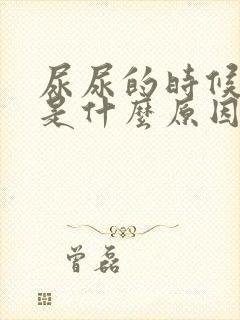 尿尿的時候
是什麼原因
曾磊